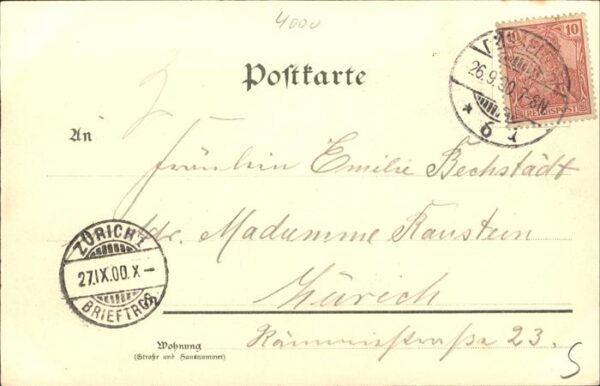 4000
10
REICHSPOST
26.9.00.7-8N.
* b 1
Postkarte
An
Fräulein Emilie Bechstädt
Adr. Madamme Kaustein
ZÜRICH 1
27.IX.00.X-
BRIEFTRGG
Zürich
Wohnung
(Straße und Hausnummer)
23.
5